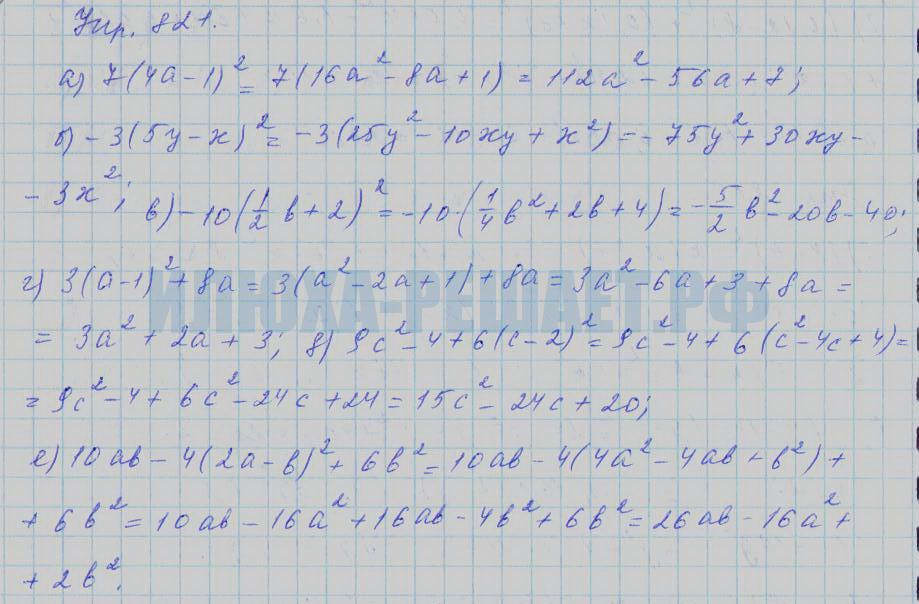 Упр. 821.
а) 7(4a-1)² = 7(16a² - 8a + 1) = 112a² - 56a + 7;
б) -3(5y-x)² = -3(25y² - 10xy + x²) = -75y² + 30xy -
- 3x²; в) -10(1/2 b + 2)² = -10·(1/4 b² + 2b + 4) = -5/2 b² - 20b - 40;
г) 3(a-1)² + 8a = 3(a² - 2a + 1) + 8a = 3a² - 6a + 3 + 8a =
ИЛЮХА-РЕШАЕТ.РФ
= 3a² + 2a + 3; д) 9c² - 4 + 6(c-2)² = 9c² - 4 + 6(c² - 4c + 4) =
= 9c² - 4 + 6c² - 24c + 24 = 15c² - 24c + 20;
е) 10ab - 4(2a-b)² + 6b² = 10ab - 4(4a² - 4ab + b²) +
+ 6b² = 10ab - 16a² + 16ab - 4b² + 6b² = 26ab - 16a² +
+ 2b².